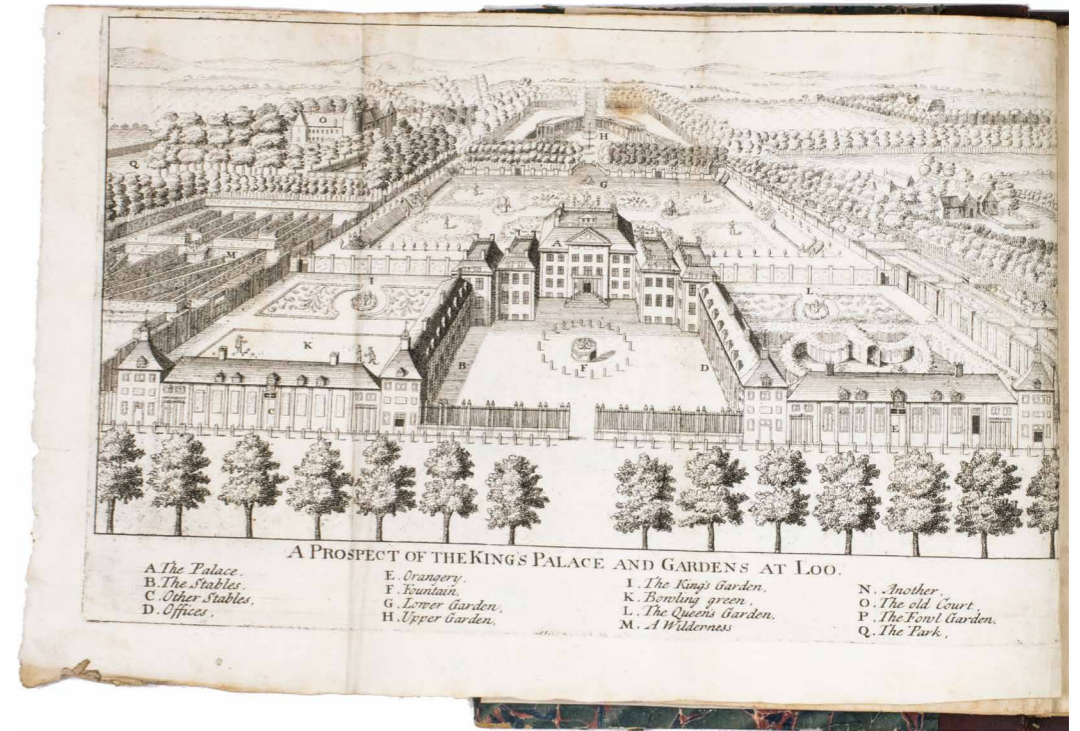 O
H
Q
G
A
M
I
L
K
B
F
D
C
E
A PROSPECT OF THE KING'S PALACE AND GARDENS AT LOO.
A. The Palace.
B. The Stables.
C. Other Stables,
D. Offices,
E. Orangery.
F. Fountain.
G. Lower Garden,
H. Upper Garden,
I. The King's Garden,
K. Bowling green,
L. The Queen's Garden,
M. A Wilderness
N. Another,
O. The old Court,
P. The Fowl Garden,
Q. The Park,